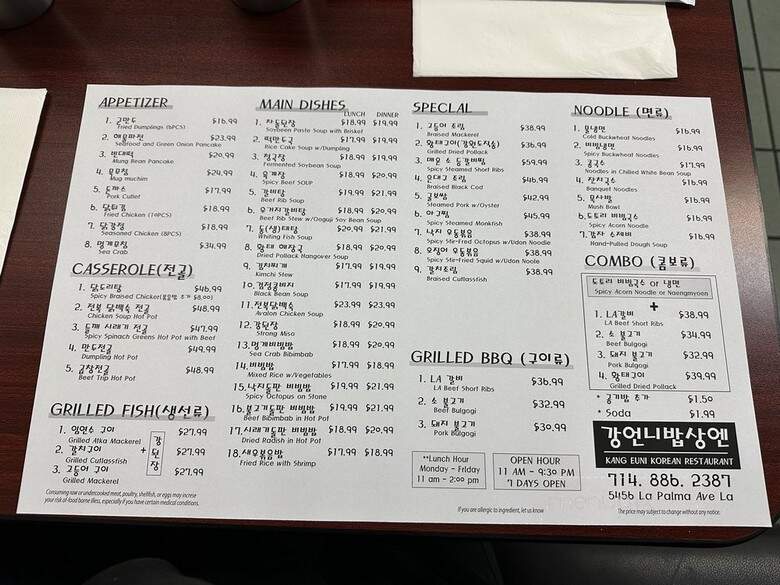 APPETIZER
1. 군만두 $16.99
Fried Dumplings (6PCS)
2. 해물파전 $23.99
Seafood and Green Onion Pancake
3. 빈대떡 $20.99
Mung Bean Pancake
4. 묵무침 $24.99
Mug muchim
5. 돈까스 $17.99
Pork Cutlet
6. 닭튀김 $18.99
Fried Chicken (14PCS)
7. 닭강정 $18.99
Seasoned Chicken (8PCS)
8. 멍게무침 $34.99
Sea Crab
CASSEROLE(전골)
1. 닭도리탕 $46.99
Spicy Braised Chicken(볶음밥 추가 $8.00)
2. 전복 닭백숙 전골 $48.99
Chicken Soup Hot Pot
3. 들깨 시래기 전골 $47.99
Spicy Spinach Greens Hot Pot with Beef
4. 만두전골 $49.99
Dumpling Hot Pot
5. 곱창전골 $48.99
Beef Trip Hot Pot
GRILLED FISH(생선류)
1. 임연수 구이 $27.99
Grilled Atka Mackerel
2. 갈치구이 $27.99
Grilled Cutlassfish
3. 고등어 구이 $27.99
Grilled Mackerel
+ 강된장
Consuming raw or undercooked meat, poultry, shellfish, or eggs may increse
your risk of food borne illness, especially if you have certain medical conditions.
MAIN DISHES
LUNCH DINNER
1. 차돌된장 $18.99 $19.99
Soybean Paste Soup with Brisket
2. 떡만두국 $17.99 $19.99
Rice Cake Soup w/Dumpling
3. 청국장 $18.99 $19.99
Fermented Soybean Soup
4. 육개장 $18.99 $20.99
Spicy Beef SOUP
5. 갈비탕 $19.99 $21.99
Beef Rib Soup
6. 우거지갈비탕 $18.99 $20.99
Beef Rib Stew w/Ooguji Soy Bean Soup
7. 동(생)태탕 $20.99 $21.99
Whiting Fish Soup
8. 황태 해장국 $18.99 $20.99
Dried Pollack Hangover Soup
9. 김치찌개 $17.99 $19.99
Kimchi Stew
10. 검정콩비지 $17.99 $19.99
Black Bean Soup
11. 전복닭백숙 $23.99 $23.99
Avalon Chicken Soup
12. 강된장 $18.99 $20.99
Strong Miso
13. 멍게비빔밥 $18.99 $20.99
Sea Crab Bibimbab
14. 비빔밥 $17.99 $19.99
Mixed Rice w/Vegetables
15. 낙지돌판 비빔밥 $19.99 $21.99
Spicy Octopus on Stone
16. 불고기돌판 비빔밥 $19.99 $21.99
Beef Bibimbab in Hot Pot
17. 시래기돌판 비빔밥 $18.99 $20.99
Dried Radish in Hot Pot
18. 새우볶음밥 $17.99 $18.99
Fried Rice with Shrimp
SPECLAL
1. 고등어 조림 $38.99
Braised Mackerel
2. 황태구이(강원도식) $36.99
Grilled Dried Pollack
3. 매운 소 등갈비찜 $59.99
Spicy Steamed Short Ribs
4. 은대구 조림 $46.99
Braised Black Cod
5. 굴보쌈 $42.99
Steamed Pork w/Oyster
6. 아구찜 $45.99
Spicy Steamed Monkfish
7. 낙지 우동볶음 $38.99
Spicy Stir-Fred Octopus w/Udon Noodle
8. 오징어 우동볶음 $38.99
Spicy Stir-Fried Squid w/Udon Noole
9. 갈치조림 $38.99
Braised Cutlassfish
GRILLED BBQ (구이류)
1. LA 갈비 $36.99
LA Beef Short Ribs
2. 소 불고기 $32.99
Beef Bulgogi
3. 돼지 불고기 $30.99
Pork Bulgogi
**Lunch Hour
Monday - Friday
11 am - 2:00 pm
OPEN HOUR
11 AM - 9:30 PM
7 DAYS OPEN
If you are allergic to ingredient, let us know
NOODLE (면류)
1. 물냉면 $16.99
Cold Buckwheat Noodles
2. 비빔냉면 $16.99
Spicy Buckwheat Noodles
3. 콩국수 $17.99
Noodles in Chilled White Bean Soup
4. 잔치국수 $16.99
Banquet Noodles
5. 묵사발 $16.99
Mush Bowl
6. 도토리 비빔국수 $16.99
Spicy Acorn Noodles
7. 감자 수제비 $16.99
Hand-Pulled Dough Soup
COMBO (콤보류)
도토리 비빔국수 or 냉면
Spicy Acorn Noodle or Naengmyoen
+
1. LA갈비 $38.99
LA Beef Short Ribs
2. 소 불고기 $34.99
Beef Bulgogi
3. 돼지 불고기 $32.99
Pork Bulgogi
4. 황태구이 $39.99
Grilled Dried Pollack
* 공기밥 추가 $1.50
* Soda $1.99
강언니밥상엔
KANG EUNI KOREAN RESTAURANT
714. 886. 2387
5456 La Palma Ave La
The price may subject to change without any notice.